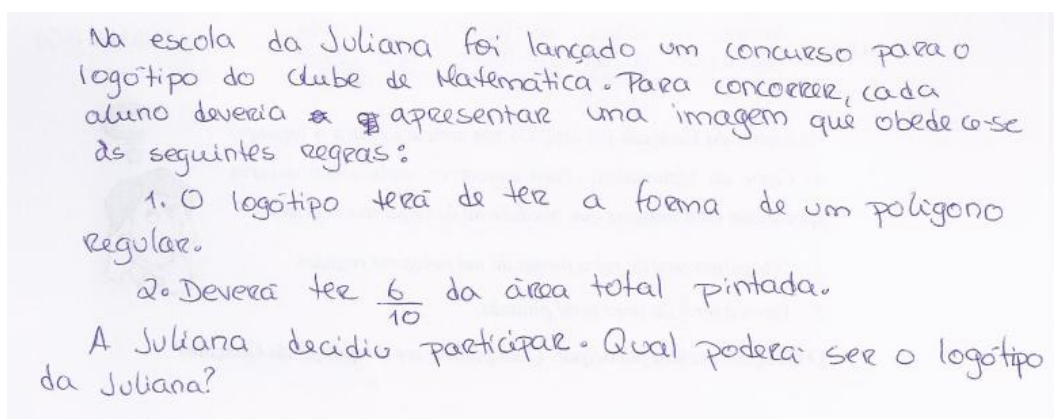 Na escola da Juliana foi lançado um concurso para o
logótipo do clube de Matemática. Para concorrer, cada
aluno deveria apresentar uma imagem que obedece-se
às seguintes regras:
1. O logótipo terá de ter a forma de um polígono
regular.
2. Deverá ter 6/10 da área total pintada.
A Juliana decidiu participar. Qual poderá ser o logótipo
da Juliana?